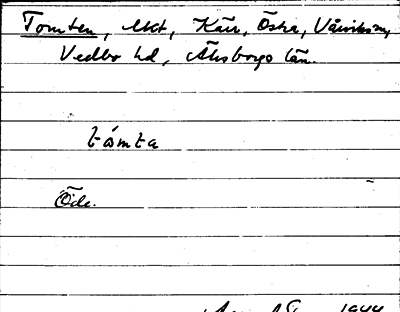 Tomten, lht, Kärr, Östra, Vårviks sn,
Vedbo hd, Älvsborgs län.
tómta
Öde.
1944